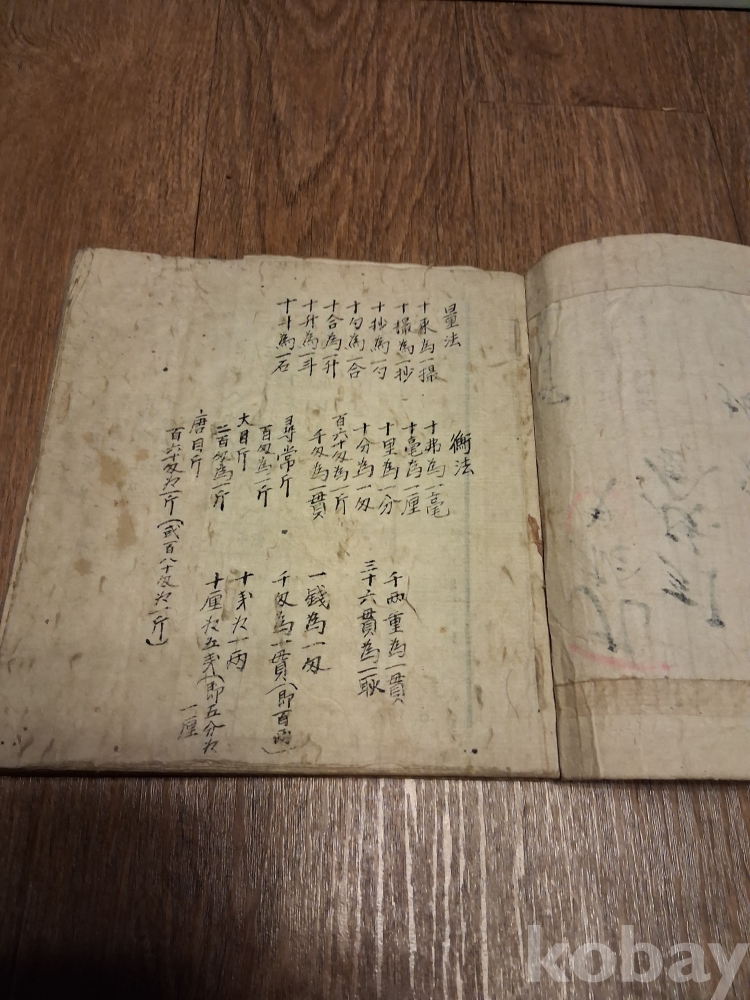 量法
十釆為一撮
十撮為一抄
十抄為一勺
十勺為一合
十合為一升
十升為一斗
十斗為一石
衡法
十弗為一毫
十毫為一厘
十里為一分
十分為一匁
百六十匁為一斤
千匁為一貫
尋常斤
百匁為一斤
大目斤
二百匁為一斤
唐目斤
百六十匁次一斤(貳百八十匁次一斤)
千両重為一貫
三十六貫為一駄
一錢為一匁
千匁為十貫(即百両)
十戔次一両
十厘次五戔(即五分次
一厘
kobay